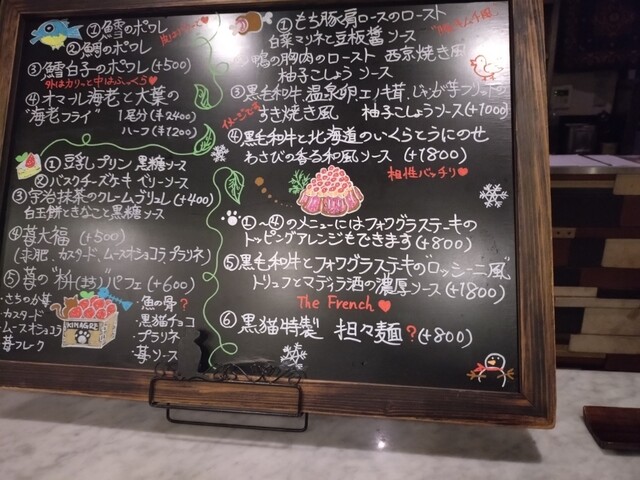 ①鱈のポワレ
②鯛のポワレ
③鱈白子のポワレ(+500)
外はカリッと中はふっくら♥
④オマール海老と大葉の
"海老フライ" 1尾分(¥2400)
ハーフ(¥1200)
①豆乳プリン 黒糖ソース
②バスクチーズケーキ ベリーソース
③宇治抹茶のクレームブリュレ(+400)
白玉餅ときなこと黒糖ソース
④苺大福 (+500)
(求肥、カスタード、ムースオショコラ、プラリネ)
⑤苺の"枡(ます)"パフェ(+600)
・さちのか苺
・カスタード
・ムースオショコラ
・苺フレーク
・魚の骨?
・黒猫チョコ
・プラリネ
・苺ソース
①もち豚肩ロースのロースト
白菜マリネと豆板醤ソース
鴨の胸肉のロースト 西京焼き風
柚子こしょうソース
③黒毛和牛、温泉卵、エノキ茸、じゃが芋フリットの
すき焼き風 柚子こしょうソース(+1000)
イメージです
④黒毛和牛と北海道のいくらとうにのせ
わさびの香る和風ソース (+1800)
相性バッチリ♥
①〜④のメニューにはフォワグラステーキの
トッピングアレンジもできます(+800)
⑤黒毛和牛とフォワグラステーキの"ロッシーニ風"
トリュフとマディラ酒の濃厚ソース(+1800)
The French♥
⑥黒猫特製 担々麺?(+800)